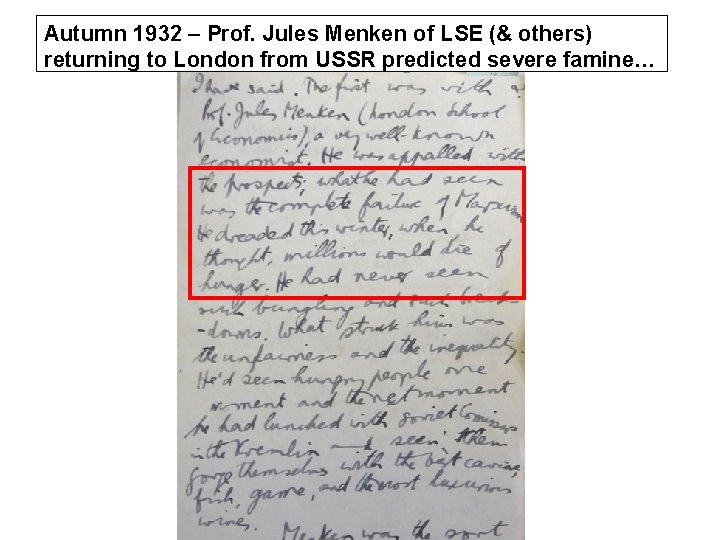 Autumn 1932 – Prof. Jules Menken of LSE (& others)
returning to London from USSR predicted severe famine…
I have said. The first was with
Prof. Jules Menken (London School
of Economics), a very well-known
economist. He was appalled with
the prospects; what he had seen
was the complete failure of Marxism.
He dreaded this winter, when he
thought, millions would die of
hunger. He had never seen
such bungling and such break-
-downs. What struck him was
the unfairness and the inequality.
He'd seen hungry people one
moment and the next moment
he had lunched with Soviet Comissars
in the Kremlin and seen them
gorge themselves with the best caviare,
fish, game, and the most luxurious
wines.
Menken was the sort